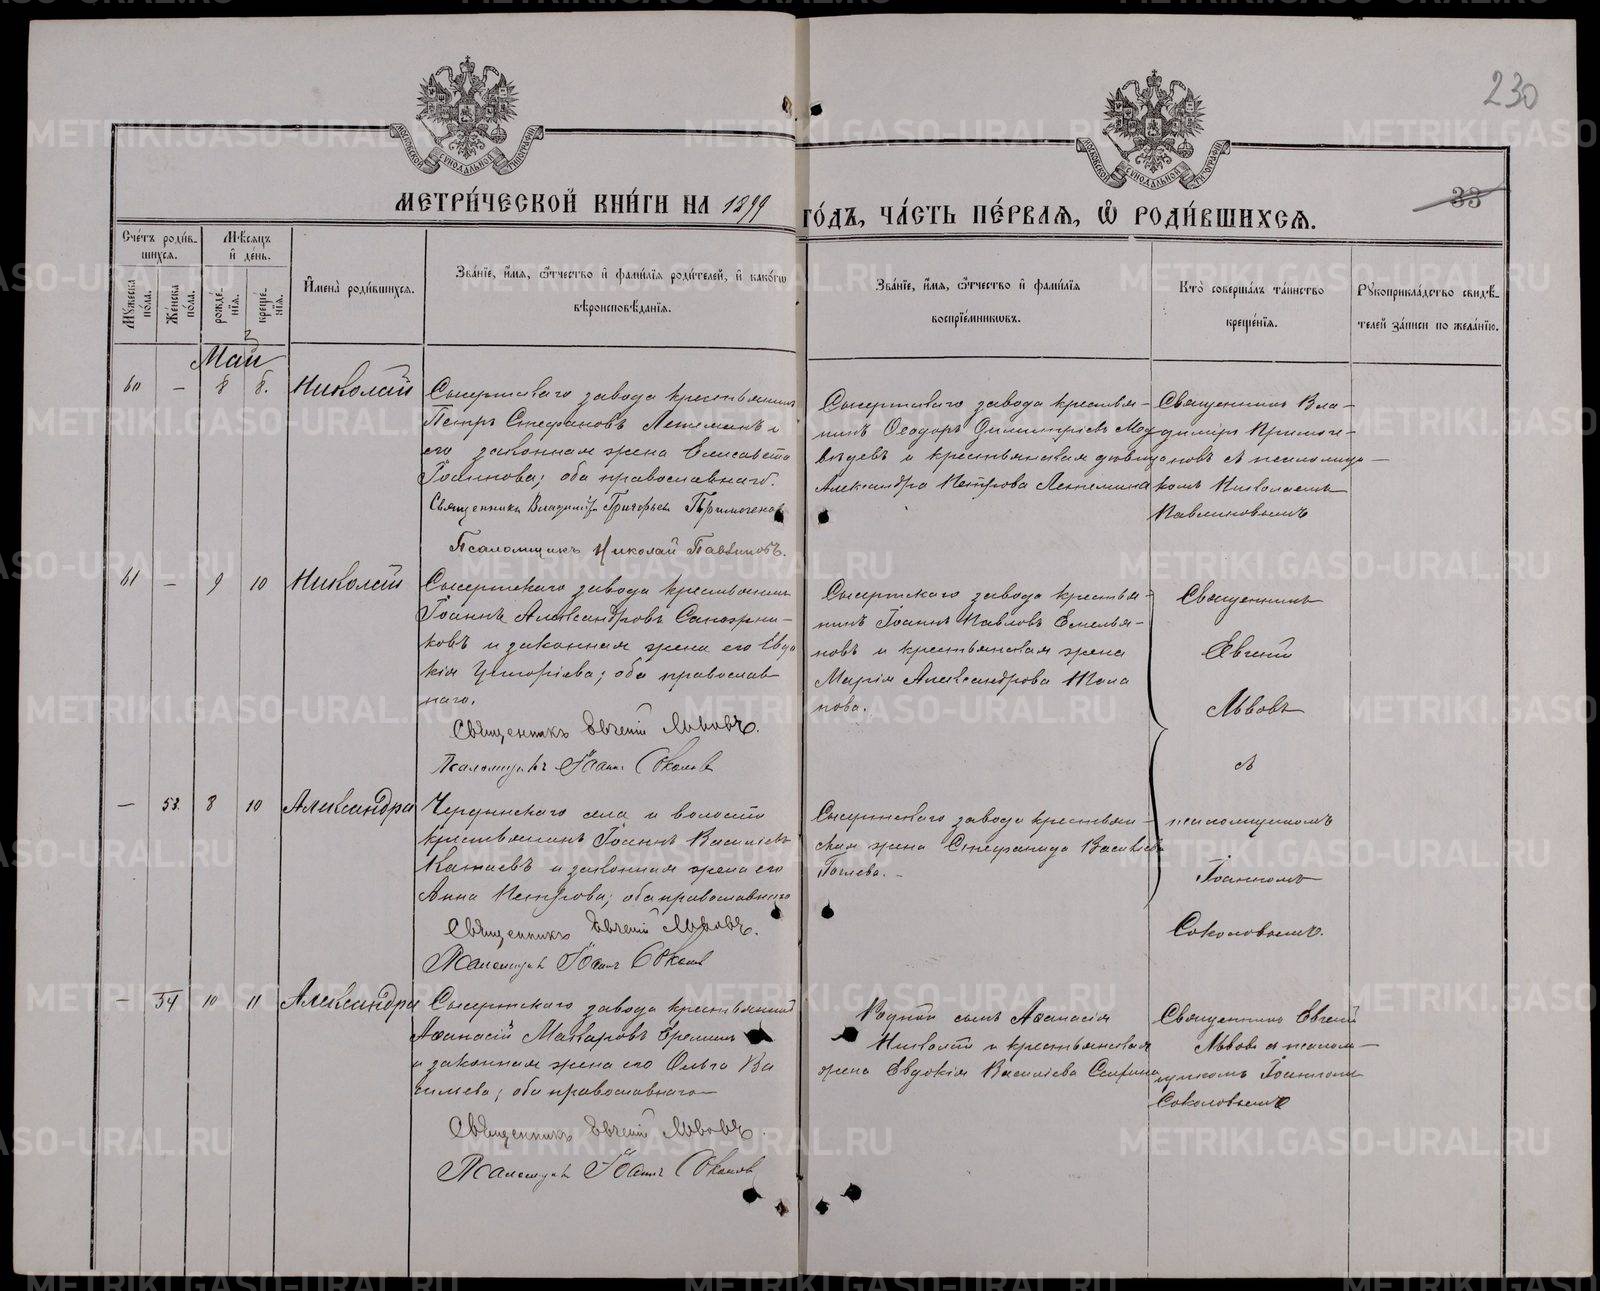 230
33
МЕТРИ́ЧЕСКОЙ КНИ́ГИ НА 1899 ГО́ДЪ, ЧА́СТЬ ПЕ́РВАЯ, Ѿ РОДИ́ВШИХСЯ.
Сче́тъ роди́вшихся.
Му́жеска пола.
Же́нска по́ла.
Мѣ́сяцъ и҆ де́нь.
рожде́нїя.
креще́нїя.
И҆мена̀ роди́вшихся.
Зва́нїе, и҆́мя, ѻ҆́тчество и҆ фами́лїя роди́телей, и҆ како́гѡ
вѣроисповѣ́данїя.
Зва́нїе, и҆́мя, ѻ҆́тчество и҆ фами́лїя
воспрїе́мникѡвъ.
Кто̀ соверша́лъ та́инство
креще́нїя.
Рꙋкоприкла́дство свидѣ́-
телей за́писи по жела́нїю.
Май
60 — 8 8. Николай
Сысертскаго завода крестьянинъ
Петръ Стефановъ Летеминъ и
его законная жена Елисавета
Іоакимова; оба православнаго.
Священникъ Владиміръ Григорьевъ Примогеновъ
Псаломщикъ Николай Павлиновъ.
Сысертскаго завода крестья-
нинъ Ѳеодоръ Димитріевъ Мед
вѣдевъ и крестьянская дѣвица
Александра Петрова Летемина
Священникъ Вла-
диміръ Примоге-
новъ съ псаломщи-
комъ Николаемъ
Павлиновымъ
61 — 9 10 Николай
Сысертскаго завода крестьянинъ
Іоаннъ Александровъ Сапожни-
ковъ и законная жена его Евдо
кія Григоріева; оба православ
наго.
Священникъ Евгеній Львовъ.
Псаломщикъ Іоаннъ Соколовъ
Сысертскаго завода крестья-
нинъ Іоаннъ Павловъ Емелья-
новъ и крестьянская жена
Марія Александрова
нова.
— 53. 8 10 Александра
села и волости
крестьянинъ Іоаннъ Василіевъ
Катаевъ и законная жена его
Анна Петрова; оба православнаго
Священникъ Евгеній Львовъ.
Псаломщикъ Іоаннъ Соколовъ
Сысертскаго завода крестьян-
ская жена Стефанида Василіева
Священникъ
Евгеній
Львовъ
съ
псаломщикомъ
Іоанномъ
Соколовымъ.
— 54 10 11 Александра
Сысертскаго завода крестьянинъ
Аѳанасій Макаровъ Ереминъ
и законная жена его Ольга Ва
сильева; оба православнаго
Священникъ Евгеній Львовъ.
Псаломщикъ Іоаннъ Соколовъ
Родной сынъ Аѳанасія
Николай и крестьянская
жена Евдокія Василіева
Священникъ Евгеній
Львовъ съ псалом-
щикомъ Іоанномъ
Соколовымъ
METRIKI.GASO-URAL.RU